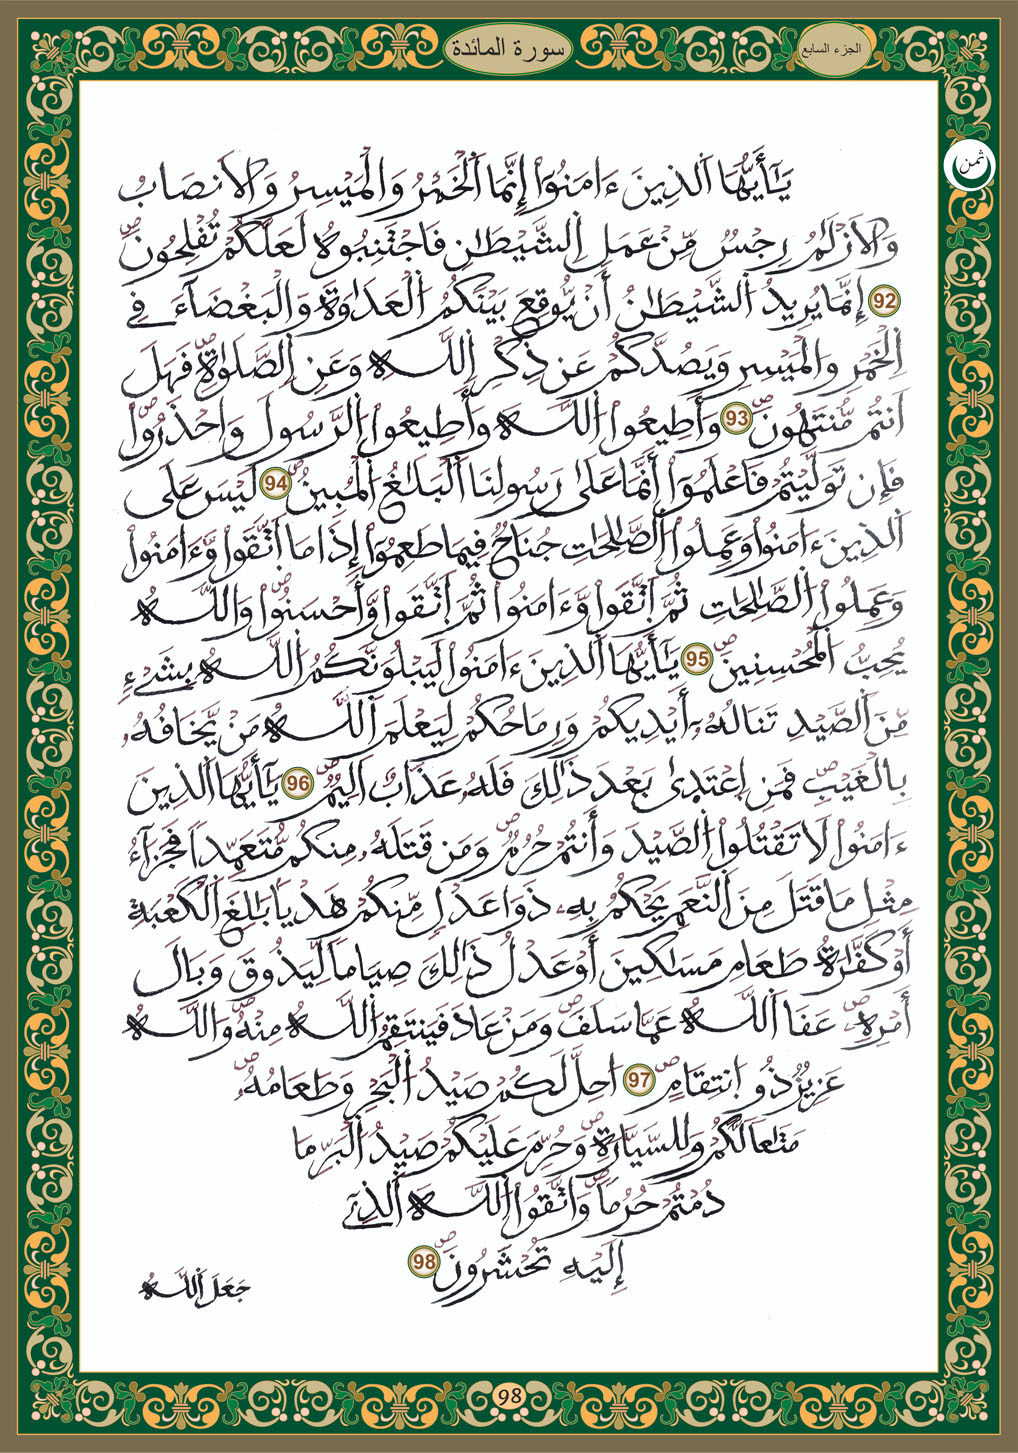 سورة المائدة
الجزء السابع
ثمن
يَـٰٓأَيُّهَا اَ۬لذِينَ ءَامَنُوٓاْ إِنَّمَا اَ۬لْخَمْرُ وَالْمَيْسِرُ وَالَانصَابُ
وَالَازْلَٰمُ رِجْسٞ مِّنْ عَمَلِ اِ۬لشَّيْطَٰنِ فَاجْتَنِبُوهُ لَعَلَّكُمْ تُفْلِحُونَۖ
92 إِنَّمَا يُرِيدُ اُ۬لشَّيْطَٰنُ أَنْ يُّوقِعَ بَيْنَكُمُ اُ۬لْعَدَٰوَةَ وَالْبَغْضَآءَ فِے
اِ۬لْخَمْرِ وَالْمَيْسِرِ وَيَصُدَّكُمْ عَن ذِكْرِ اِ۬للَّهِ وَعَنِ اِ۬لصَّلَوٰةِۖ فَهَلَ
اَنتُم مُّنتَهُونَۖ 93 وَأَطِيعُواْ اُ۬للَّهَ وَأَطِيعُواْ اُ۬لرَّسُولَ وَاحْذَرُواْۖ
فَإِن تَوَلَّيْتُمْ فَاعْلَمُوٓاْ أَنَّمَا عَلَىٰ رَسُولِنَا اَ۬لْبَلَٰغُ اُ۬لْمُبِينُۖ 94 لَيْسَ عَلَى
اَ۬لذِينَ ءَامَنُواْ وَعَمِلُواْ اُ۬لصَّٰلِحَٰتِ جُنَاحٞ فِيمَا طَعِمُوٓاْ إِذَا مَا اَ۪تَّقَواْ وَّءَامَنُواْ
وَعَمِلُواْ اُ۬لصَّٰلِحَٰتِ ثُمَّ اَ۪تَّقَواْ وَّءَامَنُواْ ثُمَّ اَ۪تَّقَواْ وَّأَحْسَنُواْۖ وَاللَّهُ
يُحِبُّ اُ۬لْمُحْسِنِينَۖ 95 يَـٰٓأَيُّهَا اَ۬لذِينَ ءَامَنُواْ لَيَبْلُوَنَّكُمُ اُ۬للَّهُ بِشَےْءٖ
مِّنَ اَ۬لصَّيْدِ تَنَالُهُۥٓ أَيْدِيكُمْ وَرِمَاحُكُمْ لِيَعْلَمَ اَ۬للَّهُ مَنْ يَّخَافُهُۥ
بِالْغَيْبِۖ فَمَنِ اِ۪عْتَد۪ىٰ بَعْدَ ذَٰلِكَ فَلَهُۥ عَذَابٌ اَلِيمٞۖ 96 يَـٰٓأَيُّهَا اَ۬لذِينَ
ءَامَنُواْ لَا تَقْتُلُواْ اُ۬لصَّيْدَ وَأَنتُمْ حُرُمٞۖ وَمَن قَتَلَهُۥ مِنكُم مُّتَعَمِّداٗ فَجَزَآءُ
مِثْلِ مَا قَتَلَ مِنَ اَ۬لنَّعَمِ يَحْكُمُ بِهِۦ ذَوَا عَدْلٖ مِّنكُمْ هَدْياَۢ بَٰلِغَ اَ۬لْكَعْبَةِ
أَوْ كَفَّٰرَةُ طَعَامِ مَسَٰكِينَ أَوْ عَدْلُ ذَٰلِكَ صِيَاماٗ لِّيَذُوقَ وَبَالَ
أَمْرِهِۦۖ عَفَا اَ۬للَّهُ عَمَّا سَلَفَۖ وَمَنْ عَادَ فَيَنتَقِمُ اُ۬للَّهُ مِنْهُۖ وَاللَّهُ
عَزِيزٞ ذُو اُ۪نتِقَامٍۖ 97 اُحِلَّ لَكُمْ صَيْدُ اُ۬لْبَحْرِ وَطَعَامُهُۥۖ
مَتَٰعاٗ لَّكُمْ وَلِلسَّيَّارَةِۖ وَحُرِّمَ عَلَيْكُمْ صَيْدُ اُ۬لْبَرِّ مَا
دُمْتُمْ حُرُماٗۖ وَاتَّقُواْ اُ۬للَّهَ اَ۬لذِےٓ
إِلَيْهِ تُحْشَرُونَۖ 98
جَعَلَ اَ۬للَّهُ
98